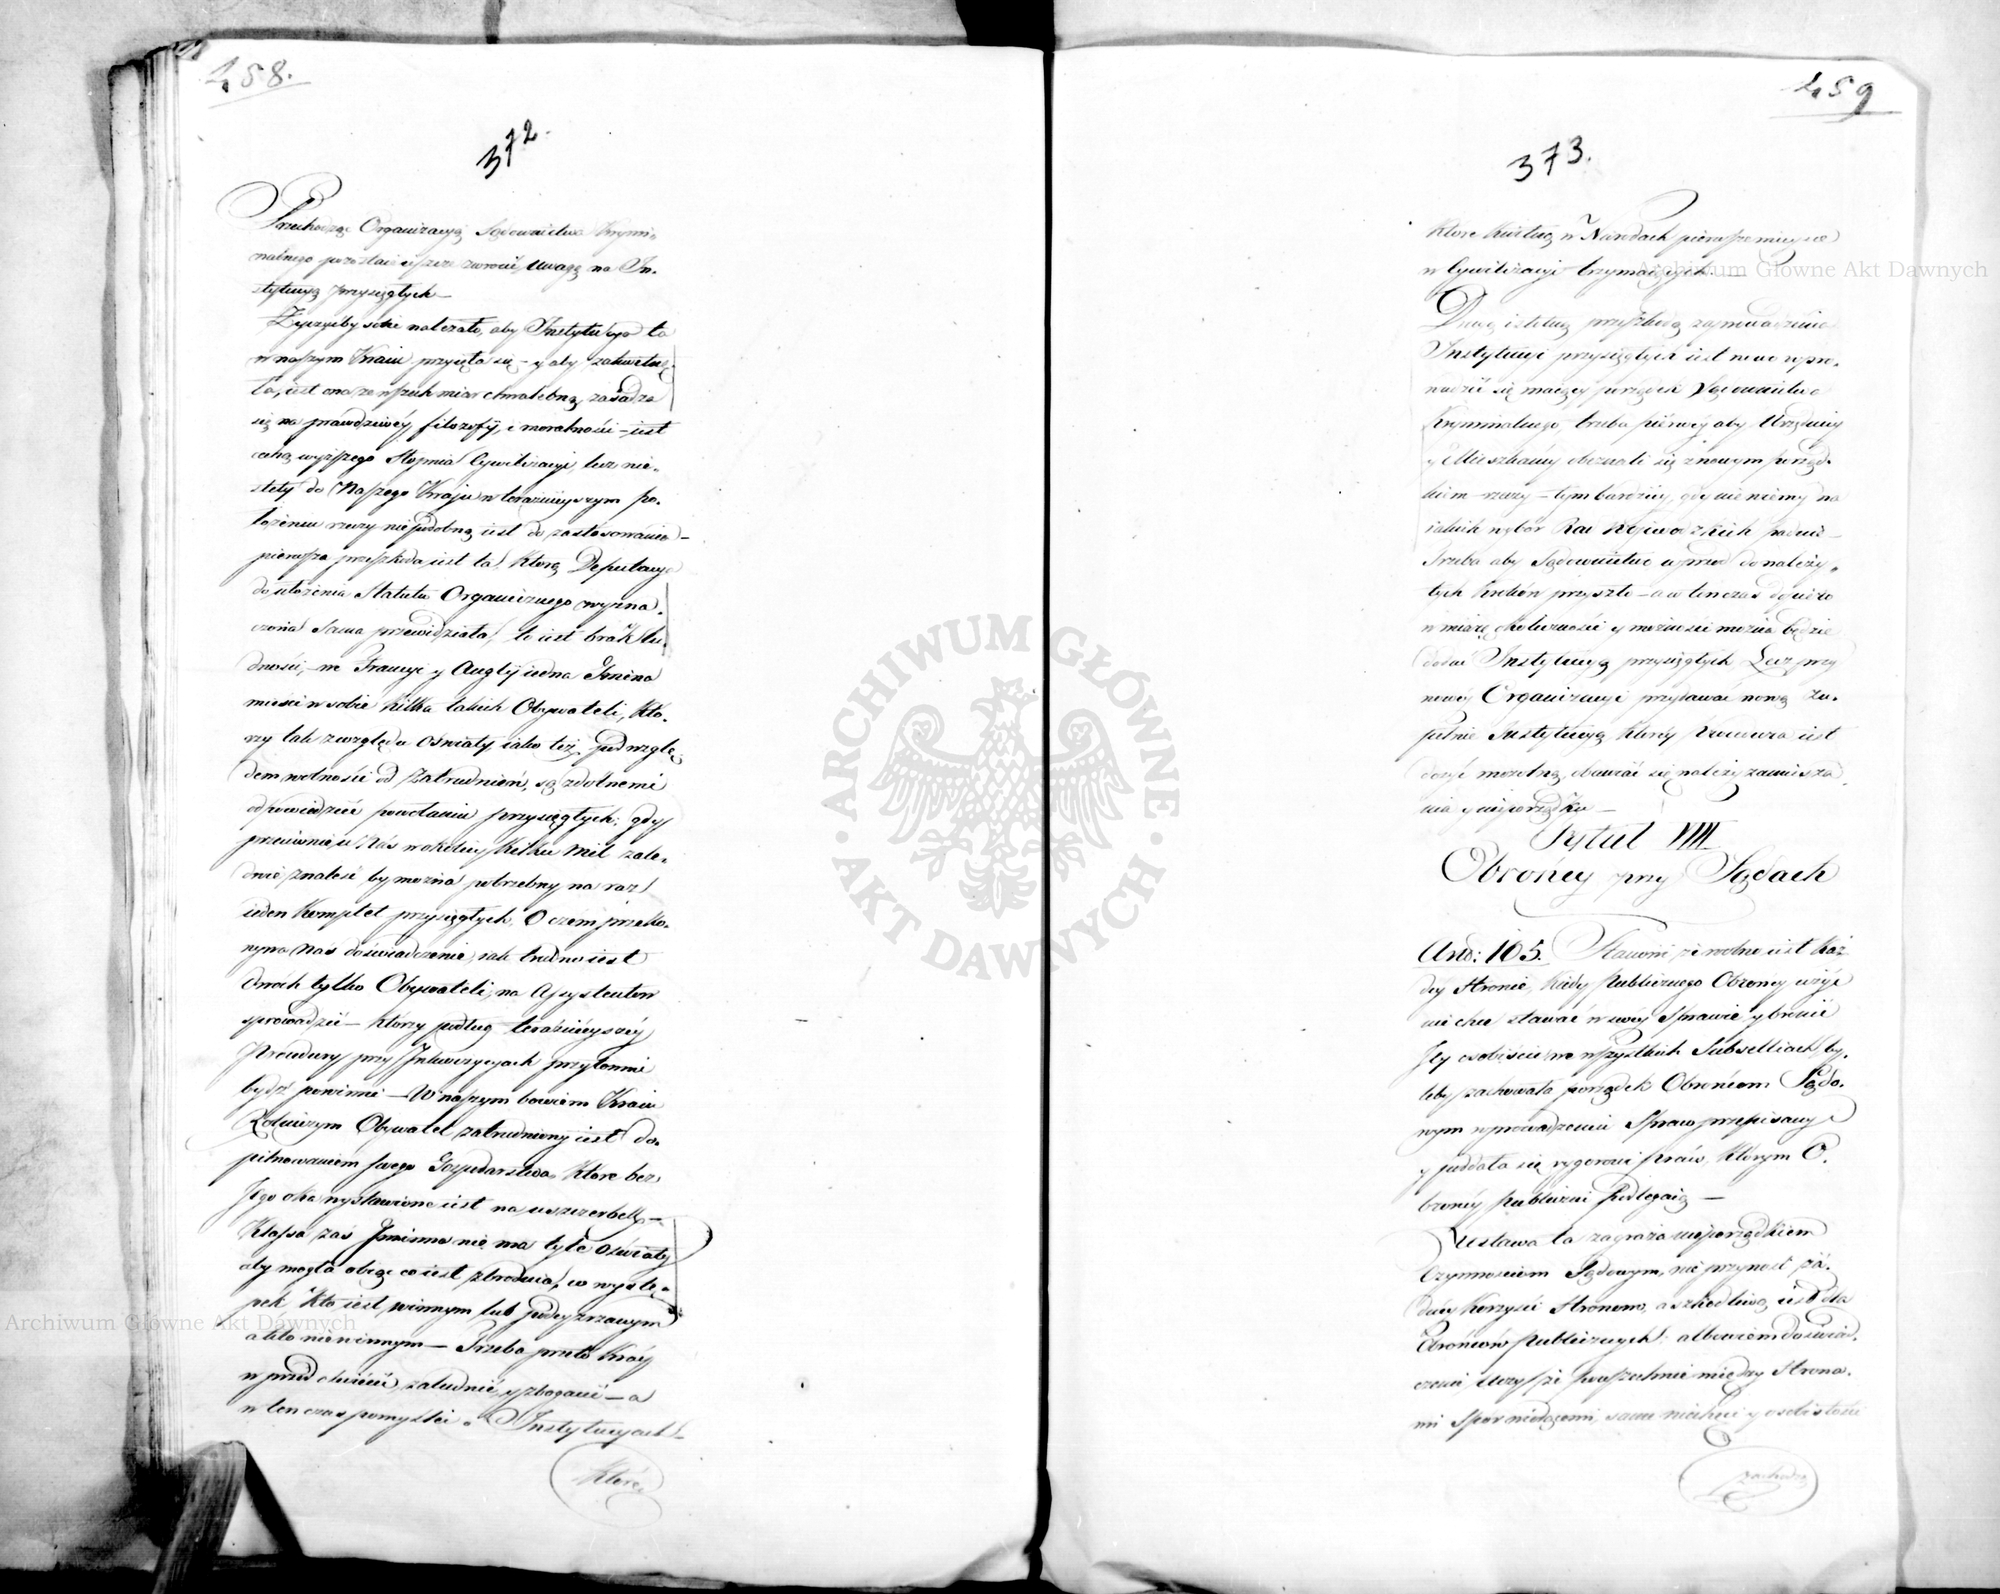 458.
372.
Przechodząc Organizacyą Sądownictwa Krymi-
nalnego pozostaie ieszcze zwrocić uwagę na In-
stytucyą przysięgłych —
Życzyćby sobie należało, aby Instytucya ta
w naszym Kraiu przyięła się — y aby zakwitnę-
ła, iest ona ze wszech miar chwalebną, zasadza
się na prawdziwéy filozofij, i moralności — iest
cechą wyższego Stopnia Cywilizacyi, lecz nie-
stety do Naszego Kraju w teraznieyszym po-
łożeniu rzeczy niepodobną iest do zastosowania —
pierwsza przeszkoda iest ta, Którą Deputacya
do ułożenia Statutu Organicznego wyzna-
czona Sama przewidziała, to iest brak lu-
dności, — we Francyi y Anglij iedna Gmina
mieści w sobie Kilka takich Obywateli, Kto-
rzy tak z względu Oświaty iako też pod wzglę-
dem wolności od Zatrudnień, są zdolnemi
odpowiedzieć powołaniu przysięgłych; gdy
przeciwnie u Nas w okolicy Kilku Mil zale-
dwie znaleść by można potrzebny na raz
ieden Komplet przysięgłych. O czem przeko-
nywa Nas doświadczenie, iak trudno iest
dwóch tylko Obywateli, na Assystentów
sprowadzić — Którzy podług teraźnieyszéy
Procedury przy Inkwizycyach przytomni
bydź powinni — W naszym bowiem Kraiu
Rolniczym Obywatel zatrudniony iest do-
pilnowaniem swego Gospodarstwa, Które bez
Jego oka wystawione iest na uszczerbek —
Klassa zaś Gminna nie ma tyle Oświaty
aby mogła obiąć co iest zbrodnia, co wystę-
pek, Kto iest winnym lub podeyrzanym
a kto niewinnym — Trzeba przeto Kray
wprzód oświécić, zaludnić, y zbogacić — a
w ten czas pomyśleć o Instytucyach
Które
459
373.
Które Kwitną w Narodach pierwsze mieysce
w Cywilizacyi trzymaiących —
Drugą istotną przeszkodą zaprowadzenia
Instytucyi przysięgłych iest nowo wpro-
wadzić się maiący porządek Sądownictwa
Kryminalnego, trzeba pierwéy aby Urzędnicy
y Mieszkańcy obeznali się z nowym porząd-
kiem rzeczy — tym bardziey, gdy nie wiemy na
iakich wybór Rad Wojewodzkich padnie —
Trzeba aby Sądownictwo wprzod do należy-
tych Kroków przyszło — a w ten czas dopiéro
w miarę okoliczności y możności można będzie
dodać Instytucyą przysięgłych Lecz przy
nowéy Organizacyi przydawać nową zu-
pełnie Instytucyą, Któréy Procedura iest
dosyć mozolną, obawiać się należy zamiesza-
nia y nieporządku —
Tytuł VIII
Obrońcy przy Sądach
Art: 165. Stanowi że wolno iest Każ-
déy Stronie, kiedy Publicznego Obrońcy użyć
nie chce stawać w swey Sprawie y bronić
Jéy osobiście we wszystkich Subselliach, by-
leby zachowała porządek Obrońcom Sądo-
wym w prowadzeniu Spraw przepisany
y poddała się rygorowi praw, Którym O-
brońcy Publiczni Podlegaią —
Ustawa ta zagraża nieporządkiem
Czynnościom Sądowym, nie przynosi żą-
dnéy Korzyści Stronom, a szkodliwą iest dla
Obrońców Publicznych: albowiem doświad-
czenie uczy, że powszechnie między Strona-
mi Spór wiodącemi, same niechęci y osobistości
zachodzą
Archiwum Główne Akt Dawnych
Archiwum Główne Akt Dawnych
ARCHIWUM GŁÓWNE
AKT DAWNYCH